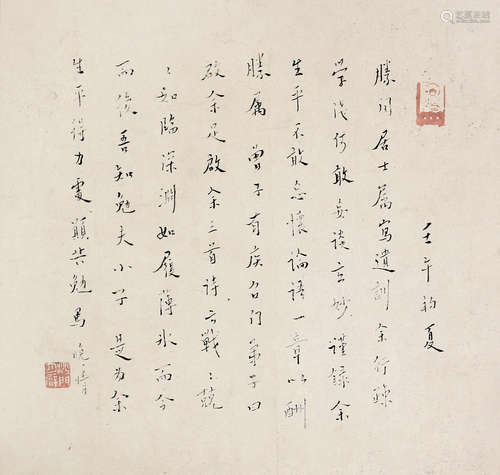 壬午初夏
勝川居士屬寫遺訓余行疎
學淺何敢妄談玄妙謹錄余
生平不敢忘懷論語一章以酬
勝屬曾子有疾召門弟子曰
啟余足啟余首詩云戰〻兢
〻如臨深淵如履薄冰而今
而後吾知勉夫小子是為余
生平得力處願共勉焉
晚晴